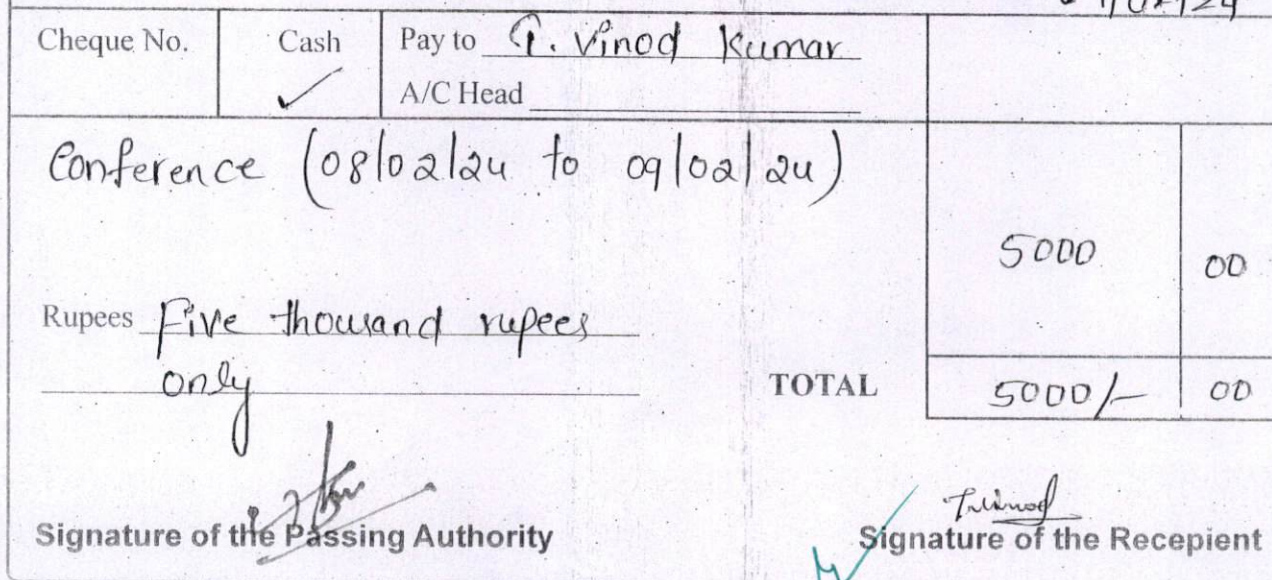 Cheque No. Cash Pay to T. Vinod Kumar
✓ A/C Head
Conference (08/02/24 to 09/02/24)
5000 00
Rupees Five thousand rupees
only TOTAL 5000/- 00
T. Vinod
Signature of the Passing Authority Signature of the Recepient